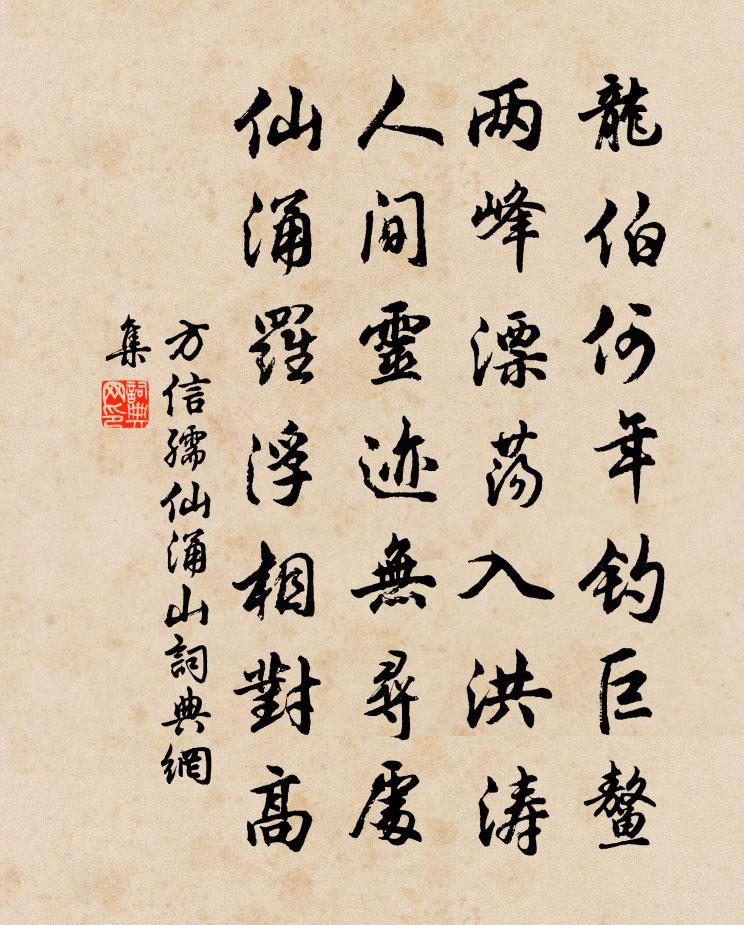 龍伯何年釣巨鰲
两峰漂荡入洪濤
人间靈迹無尋處
仙涌羅浮相對高
方信孺仙涌山詞典網
集
詞典网印